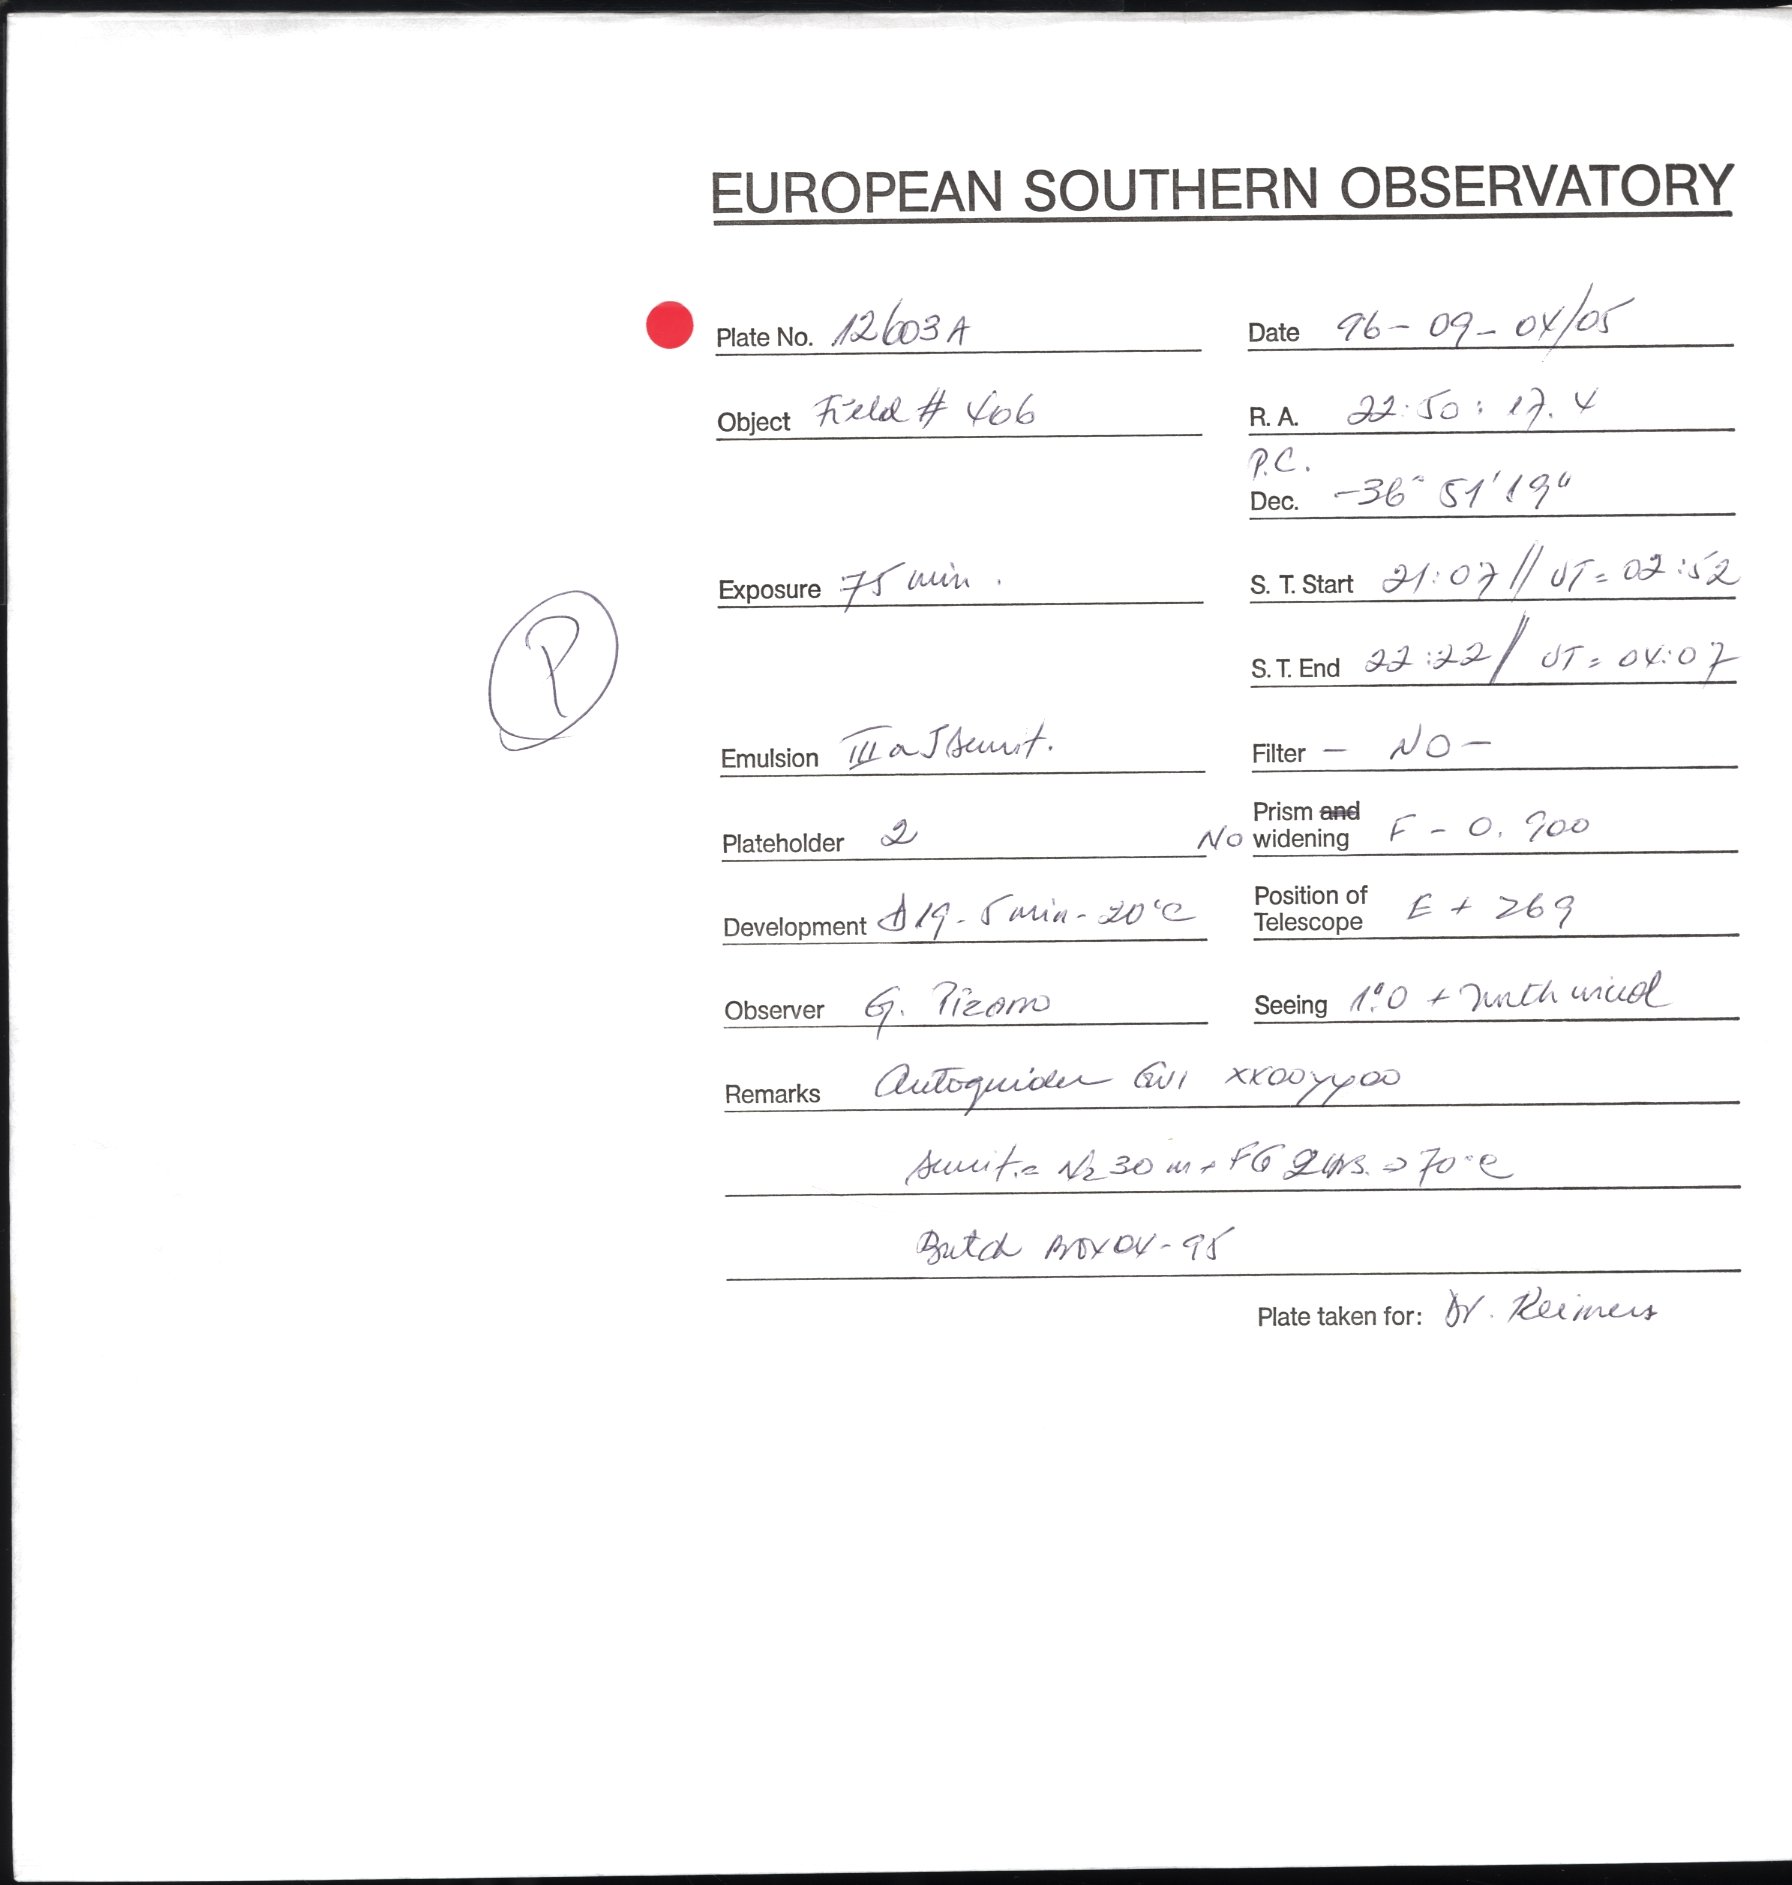 EUROPEAN SOUTHERN OBSERVATORY
Plate No. 12603A Date 96-09-04/05
Object Field # 406 R. A. 22:50:17.4
P.C.
Dec. -36° 51' 19"
Exposure 75 min. S. T. Start 21:07 // UT= 02:52
P
S. T. End 22:22 / UT= 04:07
Emulsion IIIaJ Filter - NO -
Plateholder 2 No Prism and widening F - 0.900
Development D19 - 5 min - 20°C Position of Telescope E + 269
Observer G. Pizarro Seeing 1".0 + North wind
Remarks Autoguider GV1 XX00YY00
N2 30 m + FG 2 hrs. => 70°C
Batch 04-95
Plate taken for: Dr. Reimers